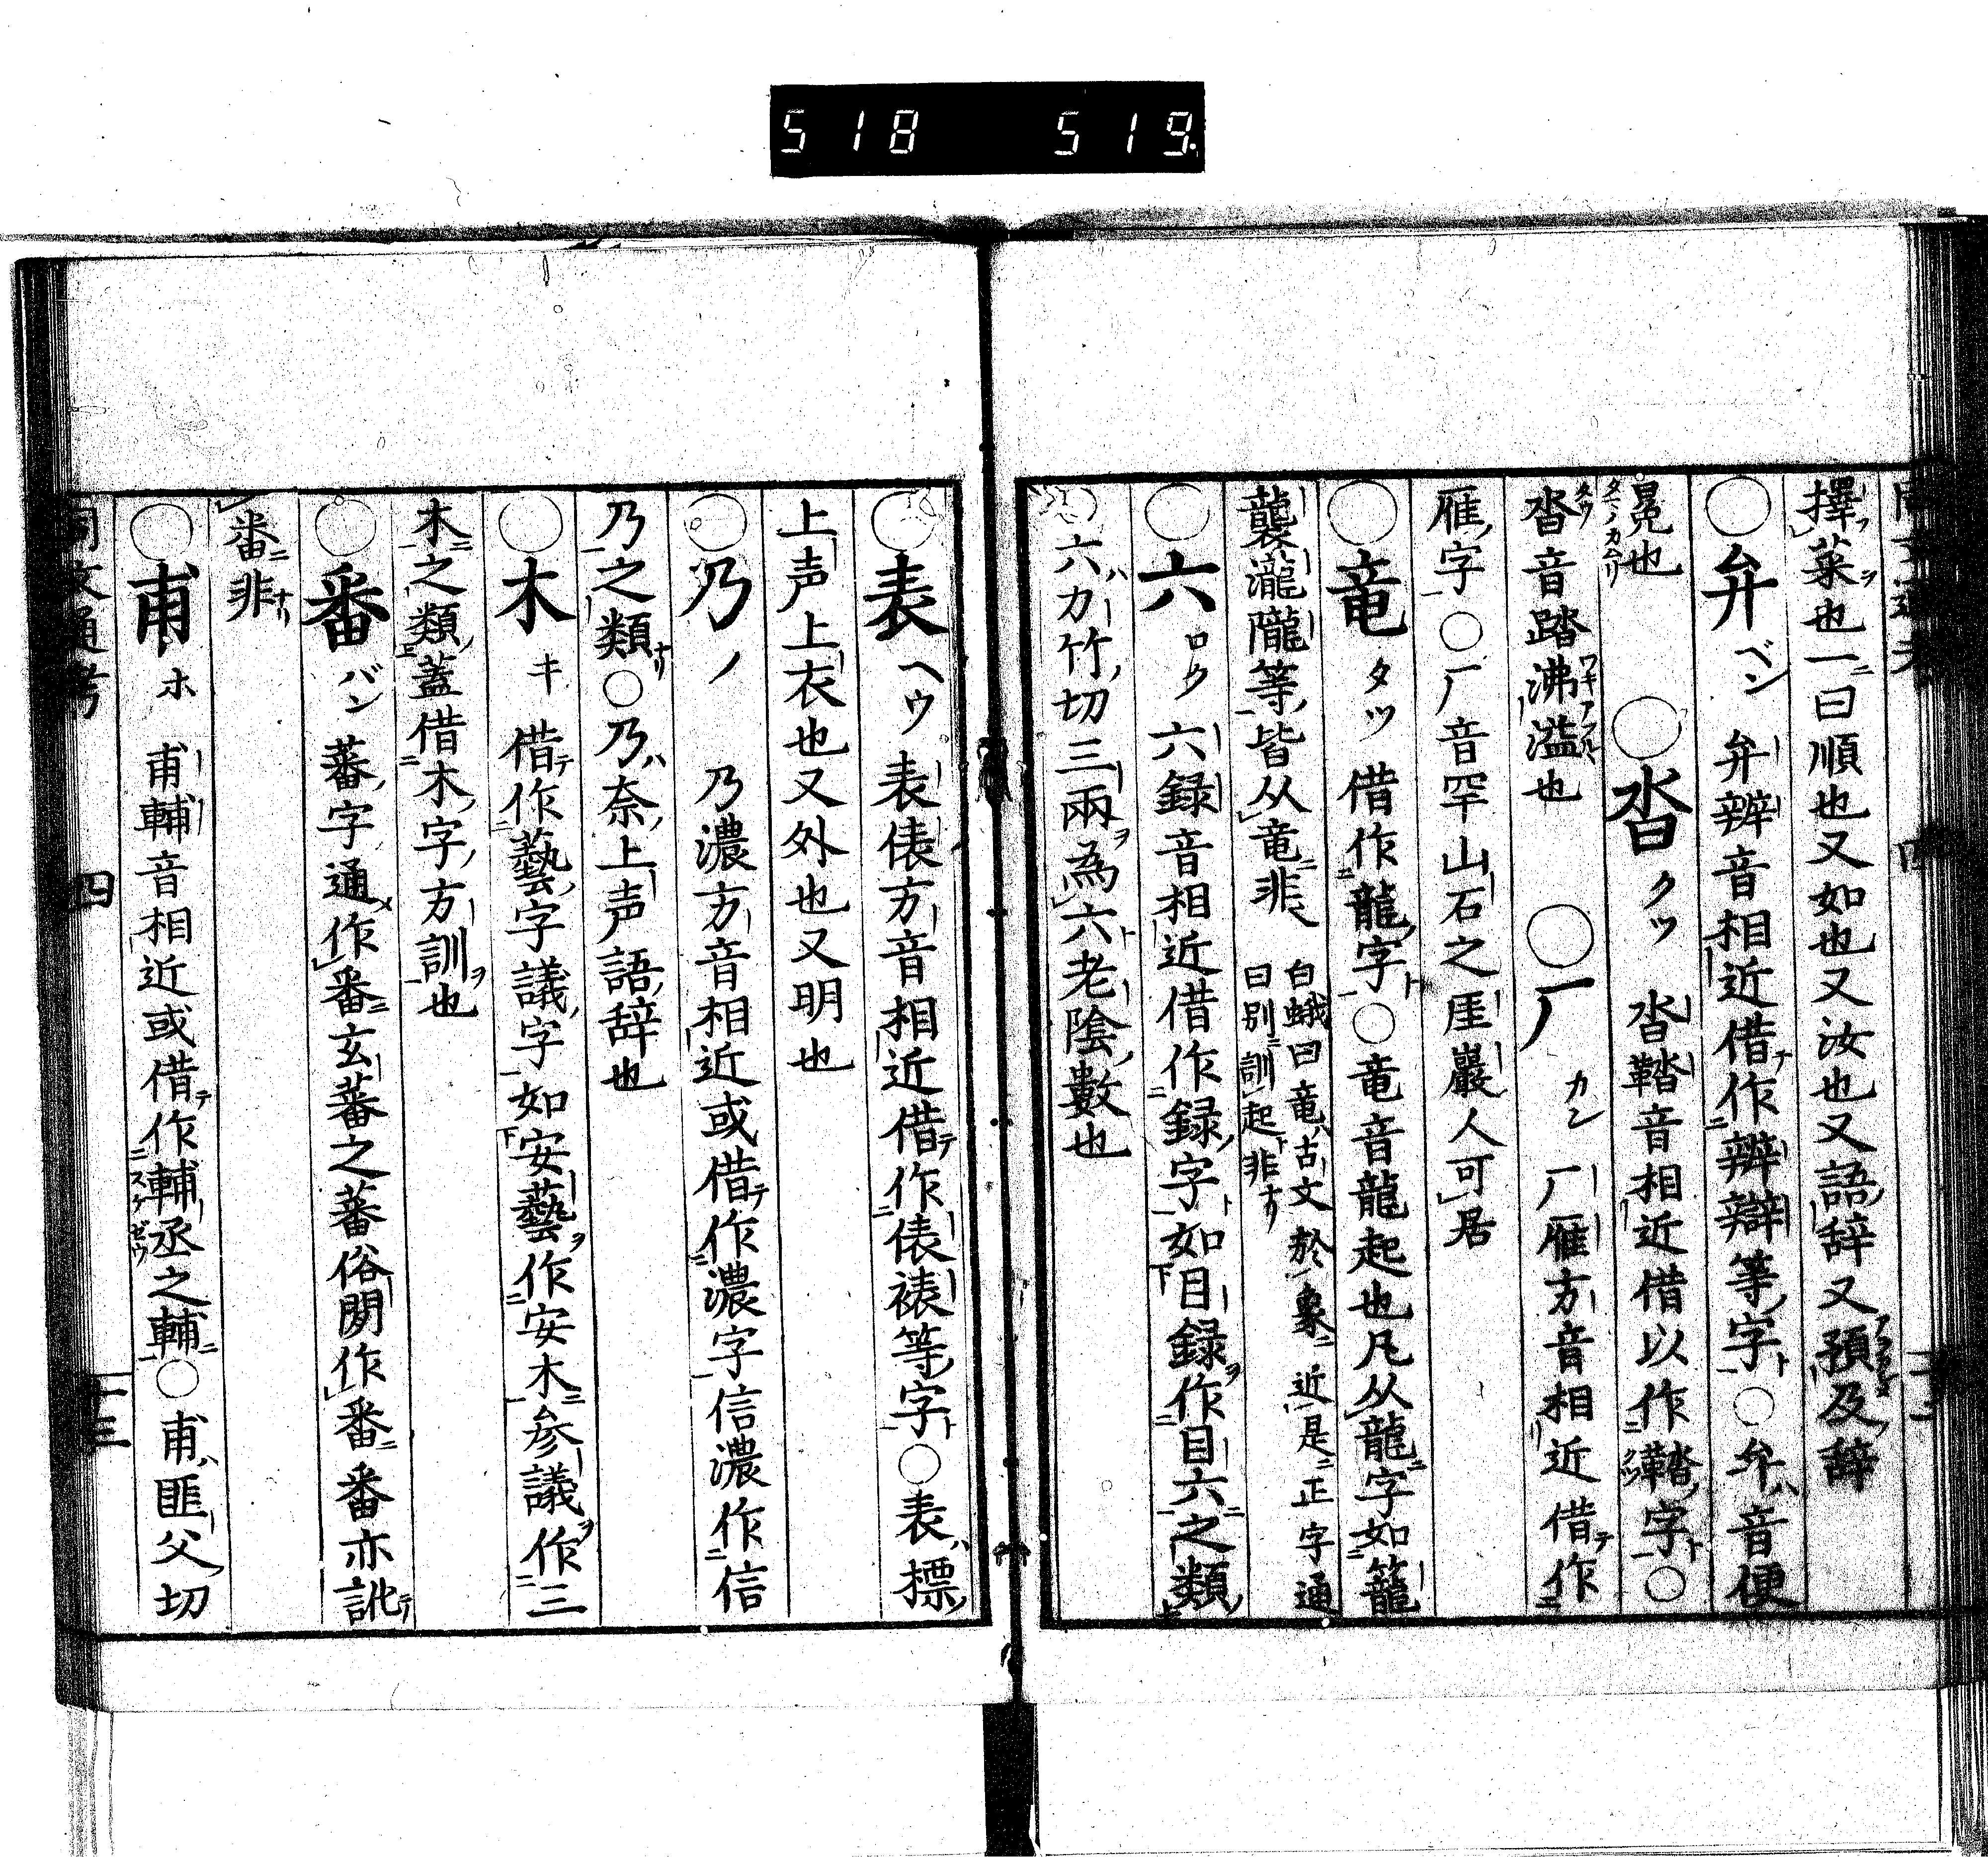 518 519
擇菜也一曰順也又如也又汝也又語辞又預及辞
○弁 ベン 弁辨音相近借作辨辯等字○弁音便
冕也 ○沓 クツ 沓鞜音相近借以作鞜字○
沓音踏沸溢也 ○厂 カン 厂雁方音相近借作
雁字○厂音罕山石之厓巖人可居
○竜 タツ 借作龍字○竜音龍起也凡从龍字如籠
襲瀧隴等皆从竜非 白蛾曰竜古文於象近是正字通
曰別訓起非
○六 ロク 六録音相近借作録字如目録作目六之類
○六力竹切三兩為六老陰數也
○表 ヘウ 表俵方音相近借作俵裱等字○表標
上声上衣也又外也又明也
○乃 ノ 乃濃方音相近或借作濃字信濃作信
乃之類○乃奈上声語辞也
○木 キ 借作藝字議字如安藝作安木参議作三
木之類蓋借木字方訓也
○番 バン 蕃字通作番玄蕃之蕃俗閒作番番亦訛
畨非
○甫 ホ 甫輔音相近或借作輔丞之輔○甫匪父切
同文通考 四 十三